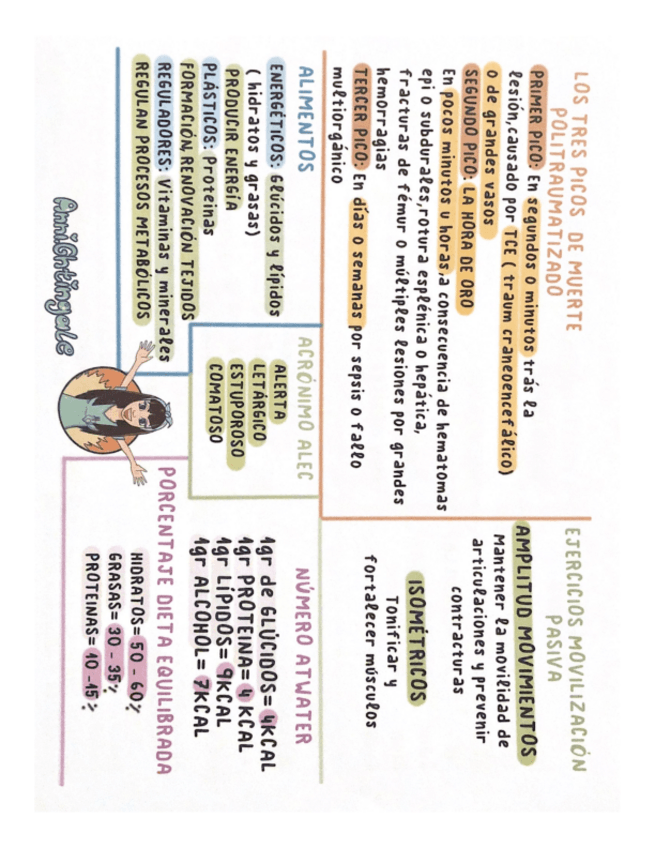 LOS TRES PICOS DE MUERTE
POLITRAUMATIZADO
PRIMER PICO: En segundos o minutos trás la
lesión, causado por TCE ( traum craneoencefálico)
o de grandes vasos
SEGUNDO PICO: LA HORA DE ORO
En pocos minutos u horas, a consecuencia de hematomas
epi o subdurales, rotura esplénica o hepática,
fracturas de fémur o múltiples lesiones por grandes
hemorragias
TERCER PICO: En días o semanas por sepsis o fallo
multiorgánico
EJERCICIOS MOVILIZACIÓN
PASIVA
AMPLITUD MOVIMIENTOS
Mantener la movilidad de
articulaciones y prevenir
contracturas
ISOMÉTRICOS
Tonificar y
fortalecer músculos
ALIMENTOS
ENERGÉTICOS: Glúcidos y lípidos
( hidratos y grasas)
PRODUCIR ENERGÍA
PLÁSTICOS: Proteinas
FORMACIÓN, RENOVACIÓN TEJIDOS
REGULADORES: Vitaminas y minerales
REGULAN PROCESOS METABÓLICOS
ACRÓNIMO ALEC
ALERTA
LETÁRGICO
ESTUPOROSO
COMATOSO
NÚMERO ATWATER
1gr de GLÚCIDOS= 4KCAL
1gr PROTEINA= 4 KCAL
1gr LÍPIDOS= 9KCAL
1gr ALCOHOL= 7KCAL
PORCENTAJE DIETA EQUILIBRADA
HIDRATOS= 50 - 60%
GRASAS= 30 - 35%
PROTEINAS= 10 -15%
AnniGhtingale